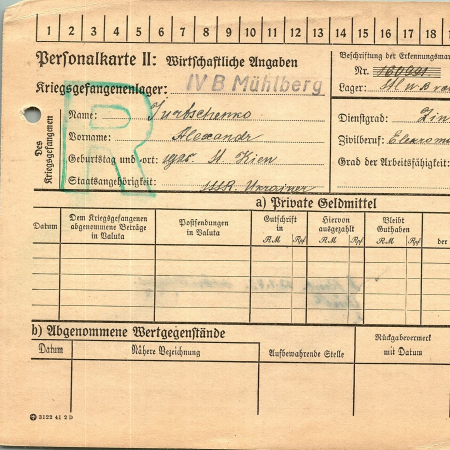 1 2 3 4 5 6 7 8 9 10 11 12 13 14 15 16 17 18
Personalkarte II: Wirtschaftliche Angaben
Beschriftung der Erkennungsmar
Kriegsgefangenenlager: IV B Mühlberg
Nr. 160991
Lager: Stlw B
Des Kriegsgefangenen
R
Name: Jurtschenko
Dienstgrad:
Vorname: Alexandr
Zivilberuf:
Geburtstag und -ort: 1925 St. Kiew
Grad der Arbeitsfähigkeit:
Staatsangehörigkeit: Ukrainer
a) Private Geldmittel
Datum
Dem Kriegsgefangenen abgenommene Beträge in Valuta
Postsendungen in Valuta
Gutschrift in
RM Rpf
Hiervon ausgezahlt
RM Rpf
Bleibt Guthaben
RM Rpf
der
b) Abgenommene Wertgegenstände
Datum
Nähere Bezeichnung
Aufbewahrende Stelle
Rückgabevermerk
mit Datum
3122 41 2 D